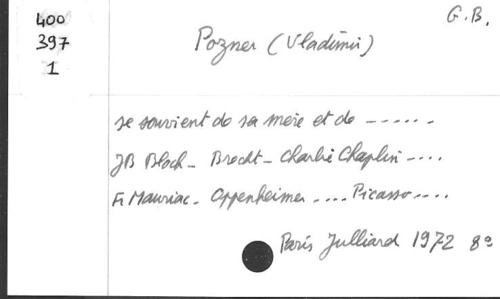 G.B.
400
397
1
Pozner (Vladimir)
se souvient de sa mère et de ------
JB Bloch - Brecht - Charlie Chaplin ....
Fr Mauriac - Oppenheimer .... Picasso ....
Paris Julliard 1972 8°